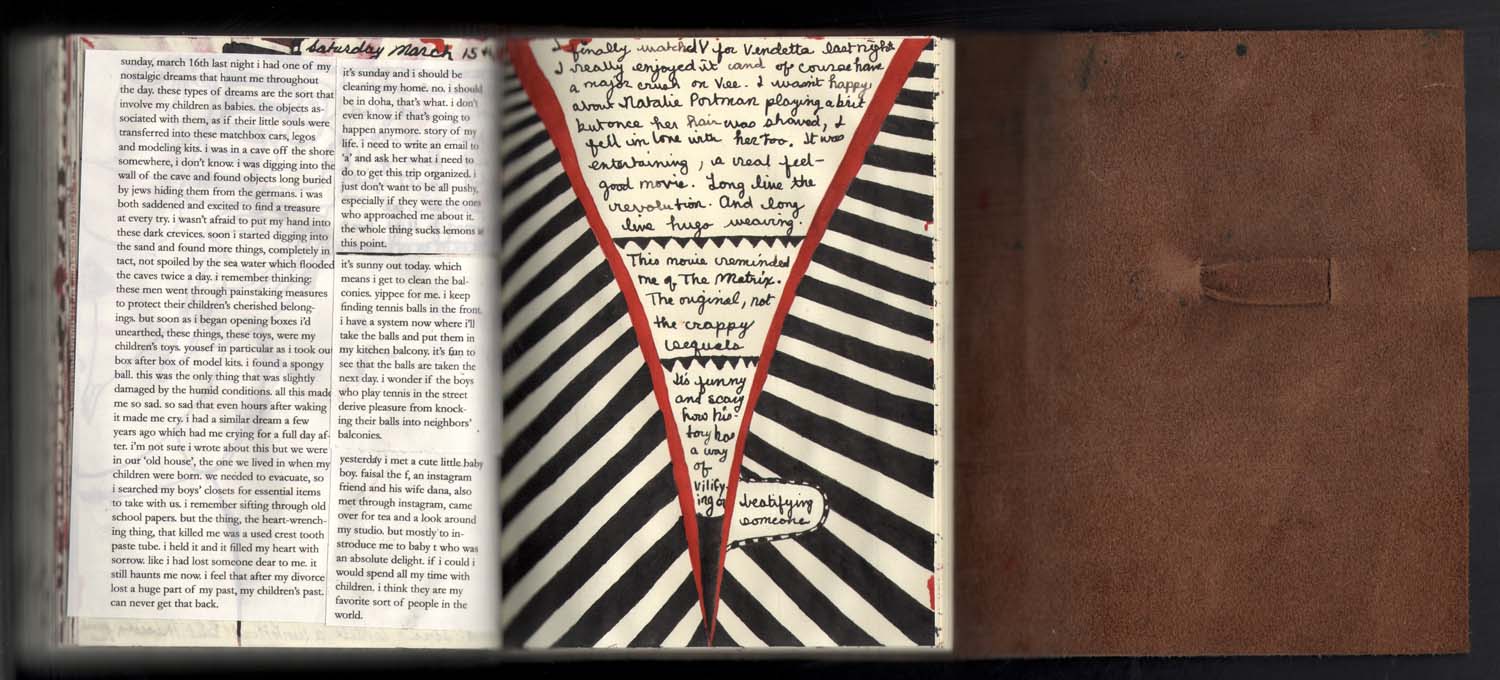 Saturday March 15th
sunday, march 16th last night i had one of my
nostalgic dreams that haunt me throughout
the day. these types of dreams are the sort that
involve my children as babies. the objects as-
sociated with them, as if their little souls were
transferred into these matchbox cars, legos
and modeling kits. i was in a cave off the shore
somewhere, i don't know. i was digging into the
wall of the cave and found objects long buried
by jews hiding them from the germans. i was
both saddened and excited to find a treasure
at every try. i wasn't afraid to put my hand into
these dark crevices. soon i started digging into
the sand and found more things, completely in
tact, not spoiled by the sea water which flooded
the caves twice a day. i remember thinking:
these men went through painstaking measures
to protect their children's cherished belong-
ings. but soon as i began opening boxes i'd
unearthed, these things, these toys, were my
children's toys. yousef in particular as i took out
box after box of model kits. i found a spongy
ball. this was the only thing that was slightly
damaged by the humid conditions. all this made
me so sad. so sad that even hours after waking
it made me cry. i had a similar dream a few
years ago which had me crying for a full day af-
ter. i'm not sure i wrote about this but we were
in our 'old house', the one we lived in when my
children were born. we needed to evacuate, so
i searched my boys' closets for essential items
to take with us. i remember sifting through old
school papers. but the thing, the heart-wrench-
ing thing, that killed me was a used crest tooth
paste tube. i held it and it filled my heart with
sorrow. like i had lost someone dear to me. it
still haunts me now. i feel that after my divorce
lost a huge part of my past, my children's past.
can never get that back.
it's sunday and i should be
cleaning my home. no. i should
be in doha, that's what. i don't
even know if that's going to
happen anymore. story of my
life. i need to write an email to
'a' and ask her what i need to
do to get this trip organized. i
just don't want to be all pushy,
especially if they were the ones
who approached me about it.
the whole thing sucks lemons at
this point.
it's sunny out today. which
means i get to clean the bal-
conies. yippee for me. i keep
finding tennis balls in the front.
i have a system now where i'll
take the balls and put them in
my kitchen balcony. it's fun to
see that the balls are taken the
next day. i wonder if the boys
who play tennis in the street
derive pleasure from knock-
ing their balls into neighbors'
balconies.
yesterday i met a cute little baby
boy. faisal the f, an instagram
friend and his wife dana, also
met through instagram, came
over for tea and a look around
my studio. but mostly to in-
stroduce me to baby t who was
an absolute delight. if i could i
would spend all my time with
children. i think they are my
favorite sort of people in the
world.
I finally watched V for Vendetta last night.
I really enjoyed it and of course have
a major crush on Vee. I wasn't happy
about Natalie Portman playing a brit
but once her hair was shaved, I
fell in love with her too. It was
entertaining, a real feel-
good movie. Long live the
revolution. And long
live hugo weaving.
This movie reminded
me of The Matrix.
The original, not
the crappy
sequels
It's funny
and scary
how his-
tory has
a way
of
vilify-
ing or beatifying
someone